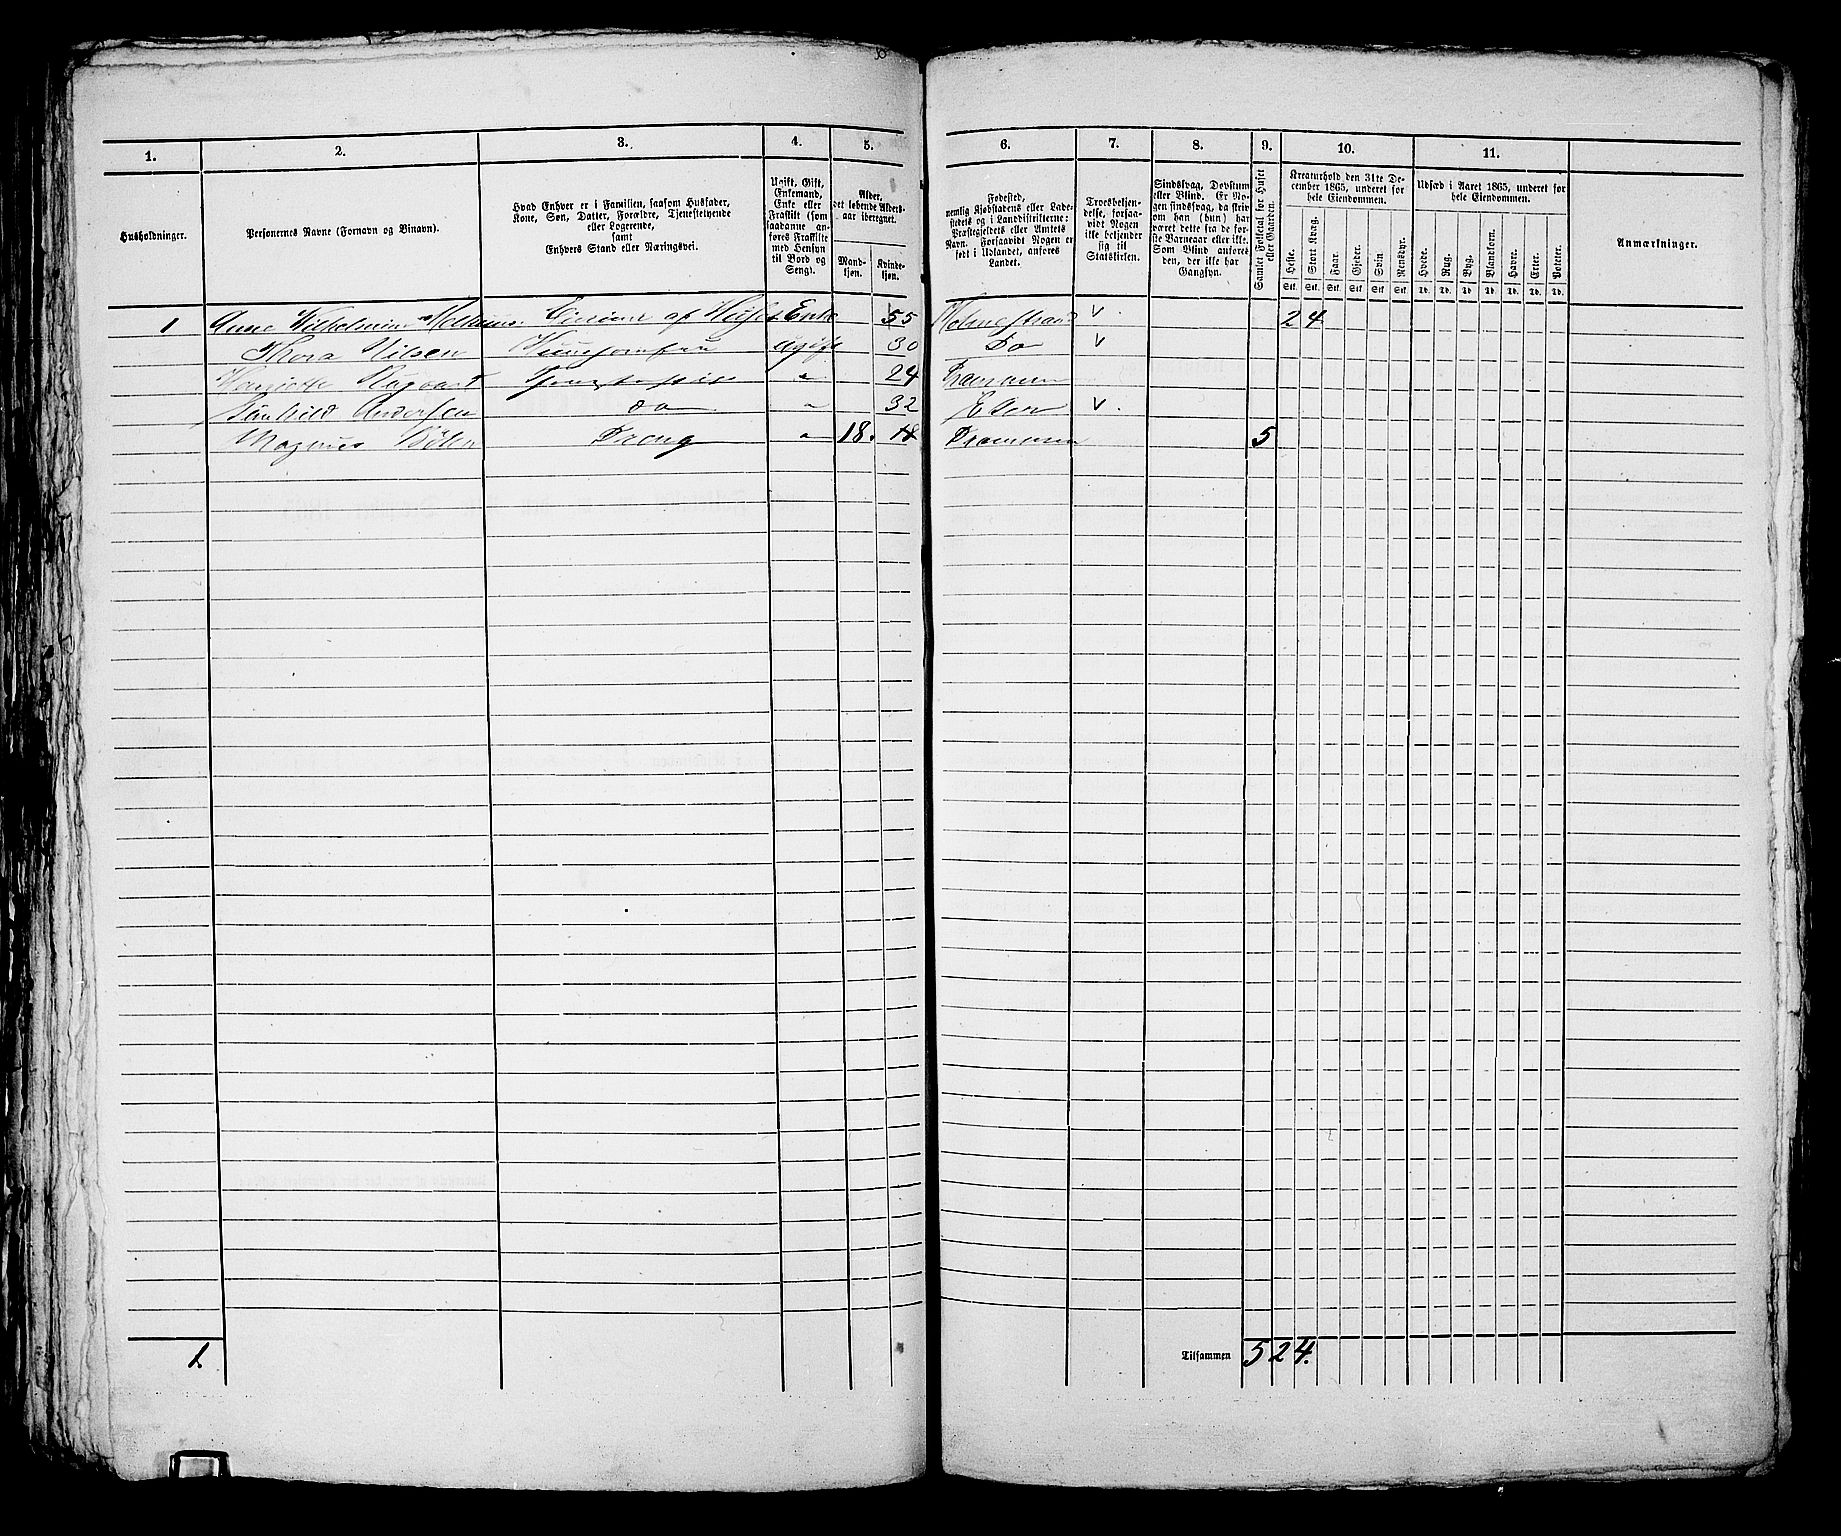 1.
2.
3.
4.
5.
6.
7.
8.
9.
10.
11.
Husholdninger.
Personernes Navne (Fornavn og Binavn).
Hvad Enhver er i Familien, saasom Husfader,
Kone, Søn, Datter, Forældre, Tjenestetyende
eller Logerende,
samt
Enhvers Stand eller Næringsvei.
Ugift, Gift,
Enkemand,
Enke eller
Fraskilt (som
saadanne an-
føres Fraskilte
med Hensyn
til Bord og
Seng).
Alder,
det løbende Alders-
aar iberegnet.
Mand-
kjøn.
Kvinde-
kjøn.
Fødested,
nemlig Kjøbstadens eller Lade-
stedets og i Landdistrikterne:
Præstegjeldets eller Amtets
Navn. Forsaavidt Nogen er
født i Udlandet, anføres
Landet.
Troesbekjen-
delse, forsaa-
vidt Nogen
ikke bekjender
sig til
Statskirken.
Sindssvag, Døvstum
eller Blind. Er No-
gen sindssvag, da skriv
om han (hun) har
været dette fra de før-
ste Barneaar eller ikke.
Som Blind anføres
den, der ikke har
Gangsyn.
Samlet Folketal for Huset
eller Gaarden.
Kreaturhold den 31te De-
cember 1865, underet for
hele Eiendommen.
Heste.
Stort Kvæg.
Faar.
Gjeder.
Svin
Rensdyr.
Stk. Stk. Stk. Stk. Stk. Stk.
Udsæd i Aaret 1865, underet for
hele Eiendommen.
Hvede.
Rug.
Byg.
Blandkorn.
Havre.
Erter.
Poteter.
Td. Td. Td. Td. Td. Td. Td.
Anmærkninger.
1 Anne Wilhelmine af Huset Enke 55 Holmestrand v. 2 4
Thora Nilsen Ugift 30 Do v
24
Andersen do 32 v.
Magnus Dreng 18. 18 Drammen 5
1. Tilsammen 5 2 4.